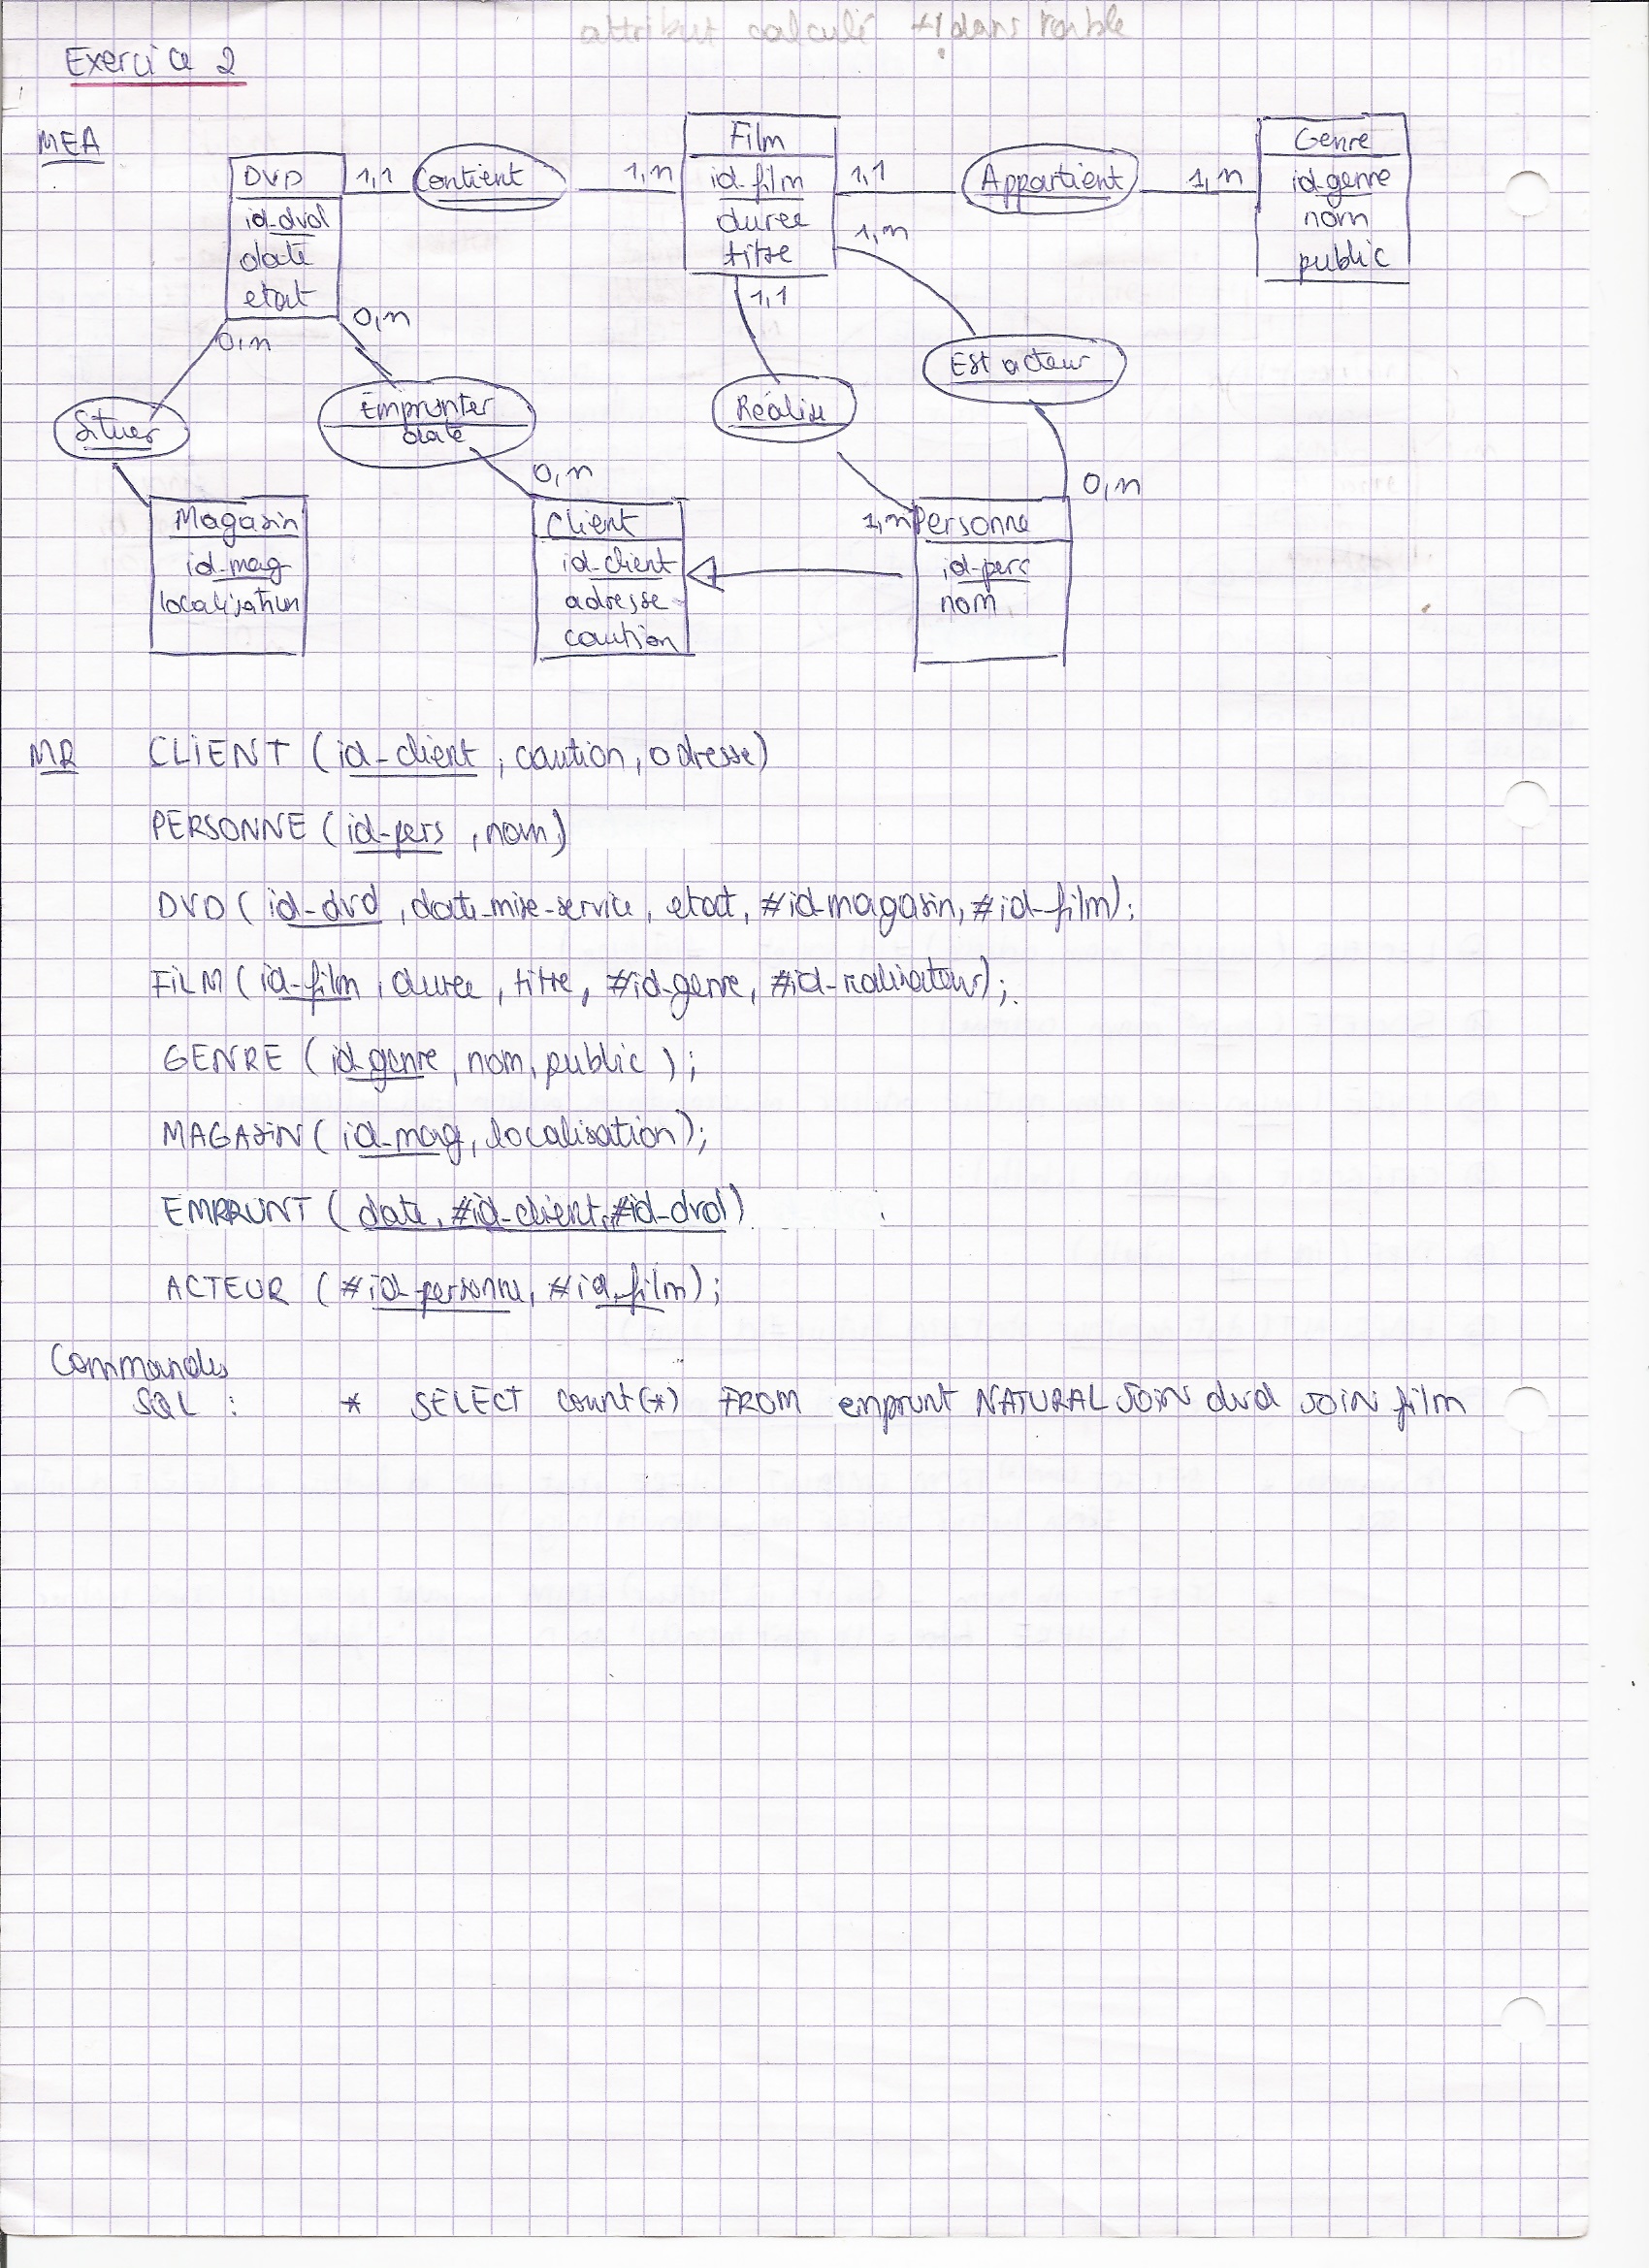 attribut calculé dans
Exercice 2
MEA
DVD
id-dvd
date
etat
1,1
Contient
1,n
Film
id-film
duree
titre
1,1
Appartient
1,n
Genre
id-genre
nom
public
1,n
1,1
0,n
0,n
Situer
Emprunter
date
Réalise
Est acteur
0,n
1,n
0,n
Magasin
id-mag
localisation
Client
id-client
adresse
caution
Personne
id-pers
nom
MR CLIENT (id-client, caution, adresse)
PERSONNE (id-pers, nom)
DVD (id-dvd, date-mise-service, etat, #id-magasin, #id-film);
FILM (id-film, duree, titre, #id-genre, #id-realisateur);
GENRE (id-genre, nom, public);
MAGASIN (id-mag, localisation);
EMPRUNT (date, #id-client, #id-dvd)
ACTEUR (#id-personne, #id-film);
Commandes
SQL : * SELECT count(*) FROM emprunt NATURAL JOIN dvd JOIN film